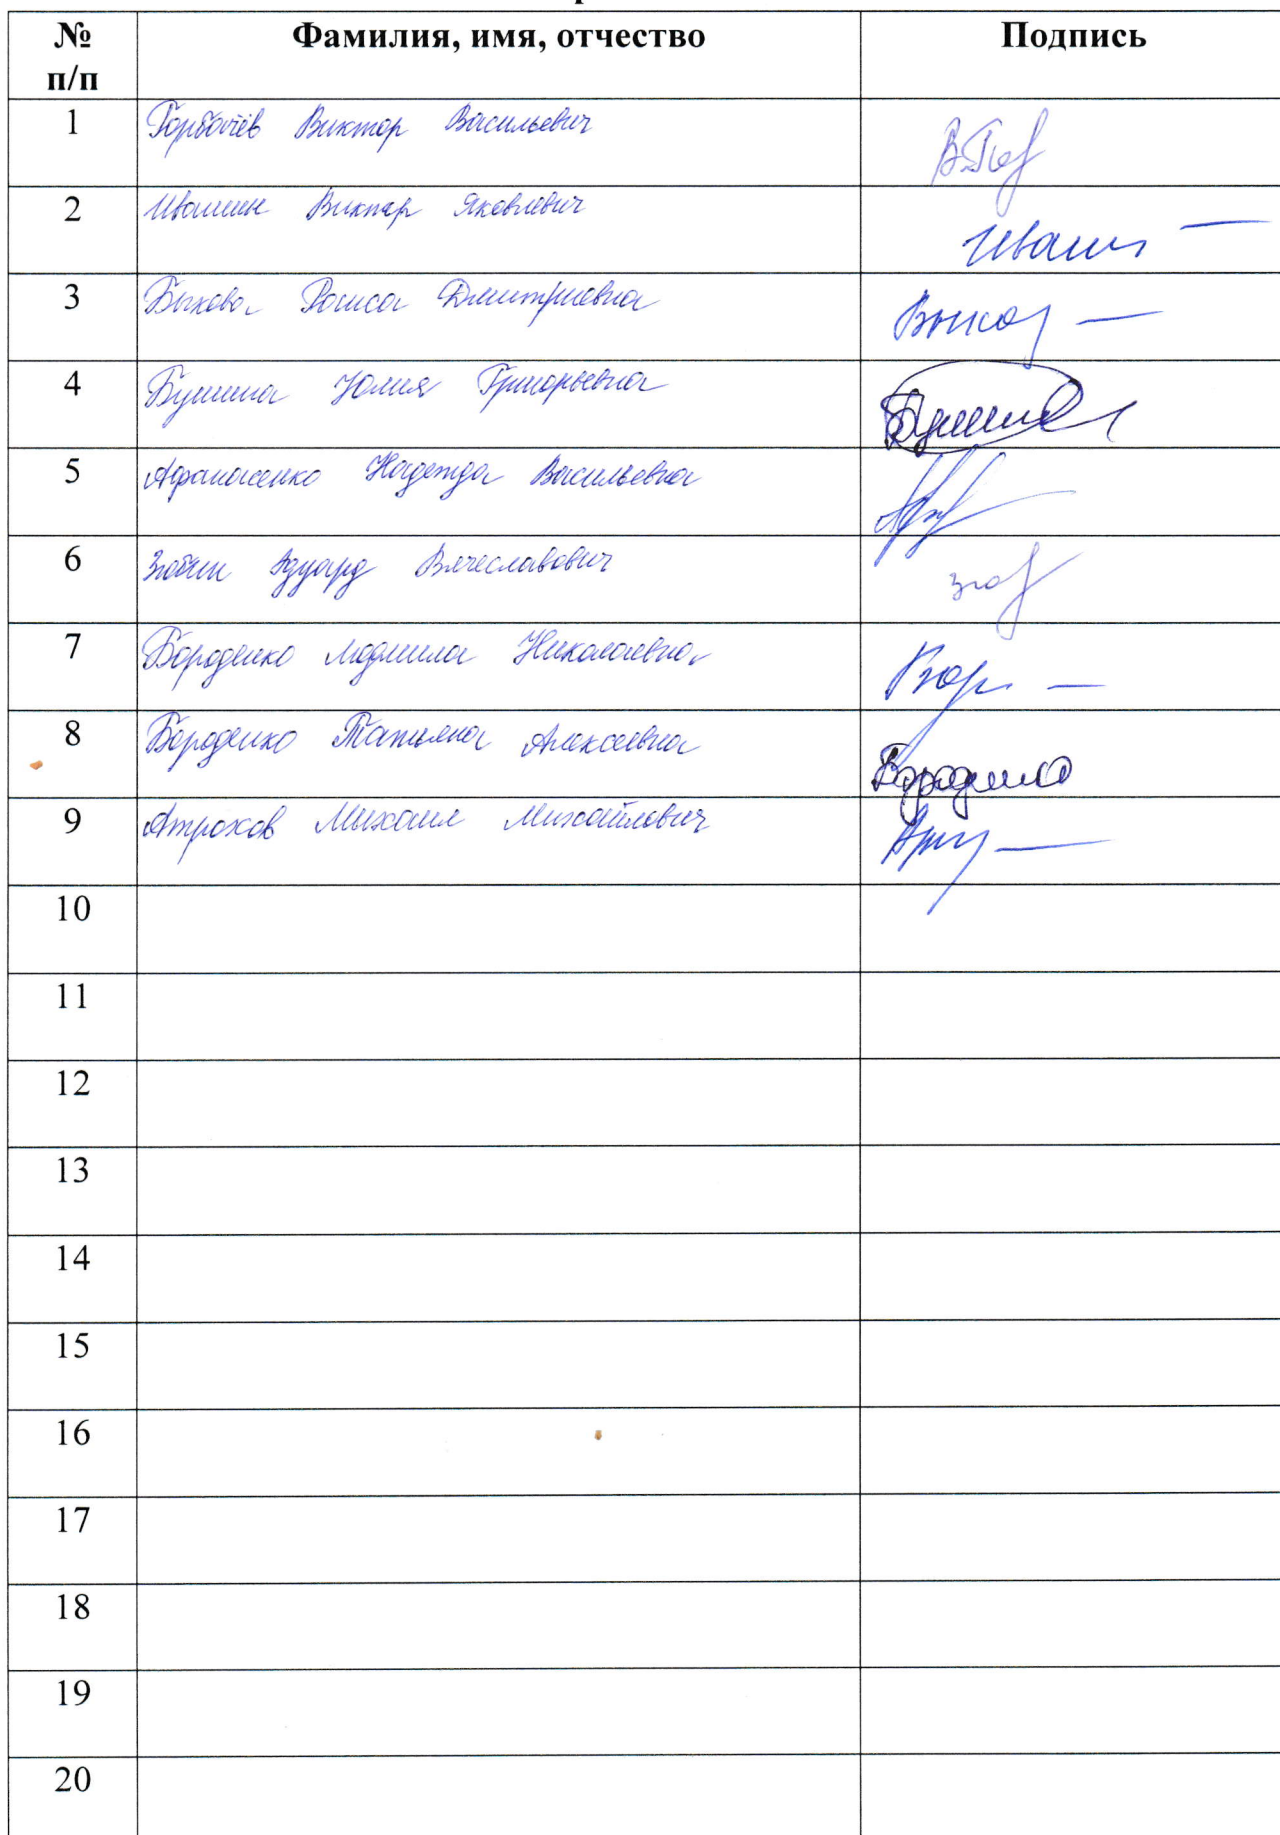 № п/п Фамилия, имя, отчество Подпись
1 Горбачёв Виктор Васильевич
2 Ивашин Виктар Яковлевич Иваш
3 Быкова Раиса Дмитриевна Быков
4 Бушина Юлия Григорьевна
5 Афанасенко Надежда Васильевна
6 Зюбин Эдуард Вячеславович Зюб
7 Бороденко Людмила Николаевна Бор
8 Бороденко Татьяна Алексеевна
9 Атрохов Михаил Михайлович
10
11
12
13
14
15
16
17
18
19
20